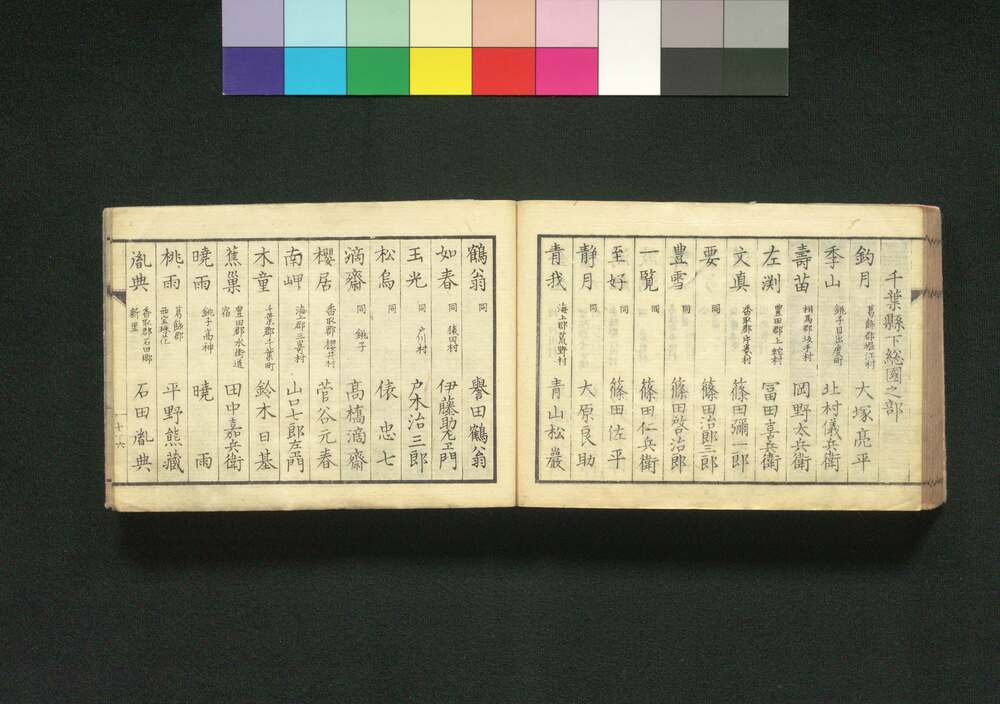 千葉縣下総國之部
釣月 葛飾郡堀江村 大塚亮平
季山 銚子日出度町 北村儀兵衛
壽苗 相馬郡坂手村 岡野太兵衛
左渕 豊田郡上蛇村 冨田喜兵衛
文真 香取郡 篠田彌一郎
要 同 篠田治郎三郎
豊雪 同 篠田啓治郎
一覧 同 篠田仁兵衛
至好 同 篠田佐平
静月 同 大原良助
青我 海上郡荒野村 青山松巌
鶴翁 同 譽田鶴翁
如春 同 猿田村 伊藤助左エ門
玉光 同 戸川村 戸木治三郎
松烏 同 俵忠七
滴齋 同 銚子 髙橋滴齋
櫻居 香取郡櫻井村 菅谷元春
南岬 海上郡三﨑村 山口七郎左エ門
木童 千葉郡千葉町 鈴木日基
蕉巣 豊田郡水街道宿 田中嘉兵衛
曉雨 銚子高神 曉雨
桃雨 葛飾郡 平野熊藏
胤典 香取郡石田郷新里 石田胤典
十六